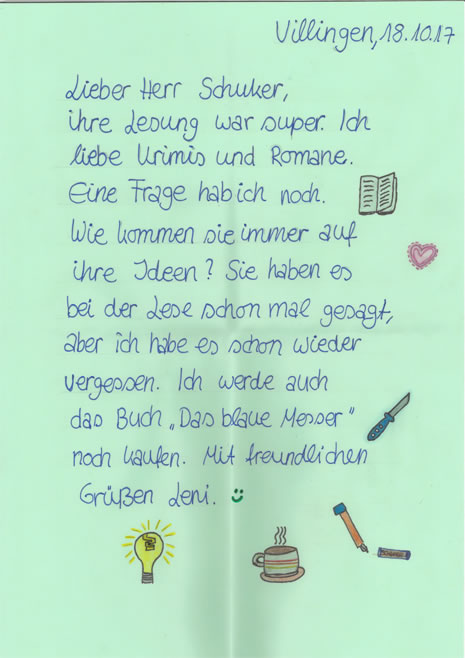 Villingen, 18.10.17
Lieber Herr Schuker,
ihre Lesung war super. Ich
liebe Krimis und Romane.
Eine Frage hab ich noch.
Wie kommen sie immer auf
ihre Ideen? Sie haben es
bei der Lese schon mal gesagt,
aber ich habe es schon wieder
vergessen. Ich werde auch
das Buch „Das blaue Messer"
noch kaufen. Mit freundlichen
Grüßen Leni.